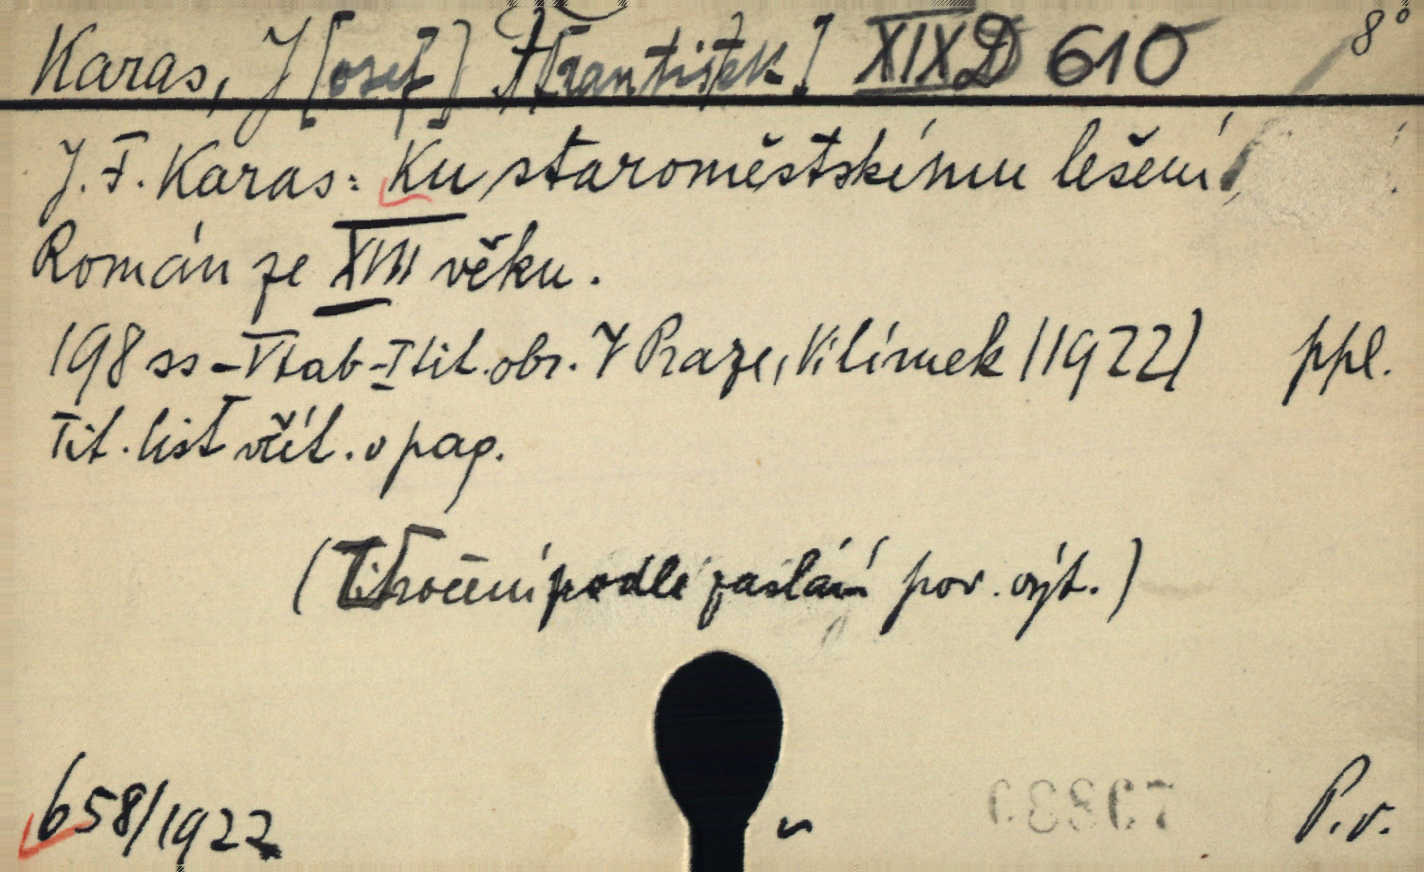 Karas, J[osef] F[rantišek] XIX D 610 8°
J. F. Karas: Ku staroměstskému lešení,
Román ze XVIII věku.
198 ss - V tab - I tit. obr. V Praze, Vilímek (1922) ppl.
Tit. list včít. v pag.
podle zaslání pov. výt.)
658/1922 P.v.